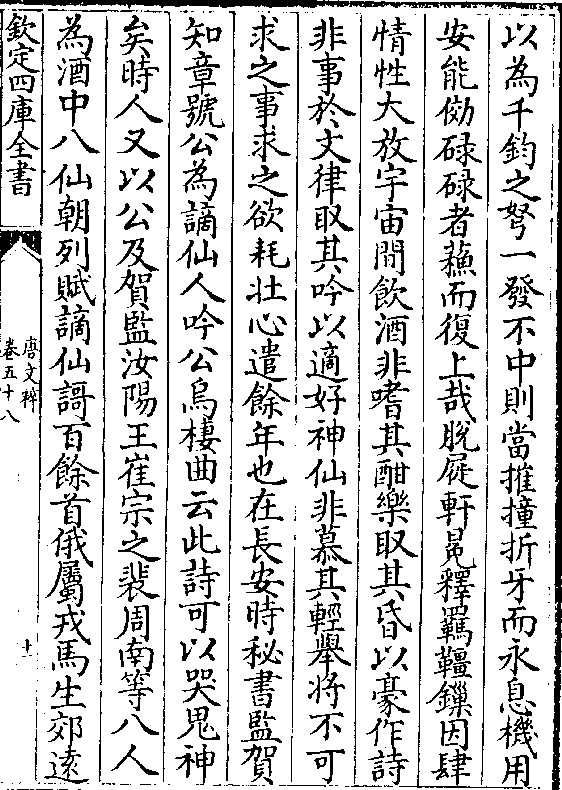 以為千鈞之弩一發不中則當摧撞折牙而永息機用
安能傚碌碌者蘓而復上哉脫屣軒冕釋羈韁鏁因肆
情性大放宇宙間飲酒非嗜其酣樂取其昏以豪作詩
非事於文律取其吟以適好神仙非慕其輕舉將不可
求之事求之欲耗壮心遣餘年也在長安時秘書監賀
知章號公為謫仙人吟公烏棲曲云此詩可以哭鬼神
矣時人又以公及賀監汝陽王崔宗之裴周南等八人
為酒中八仙朝列賦謫仙謌百餘首俄屬戎馬生郊逺
欽定四庫全書
唐文粹
卷五十八
十一